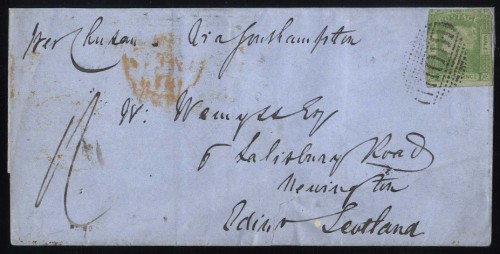 Per Chusan. Via Southampton
W. Wemyss Esq
5 Salisbury Road
Newington
Edinr Scotland
POSTAGE